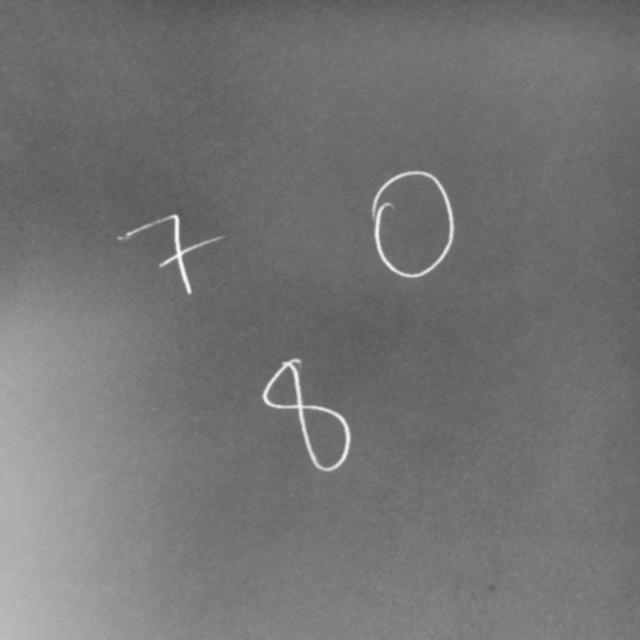 7 0
8